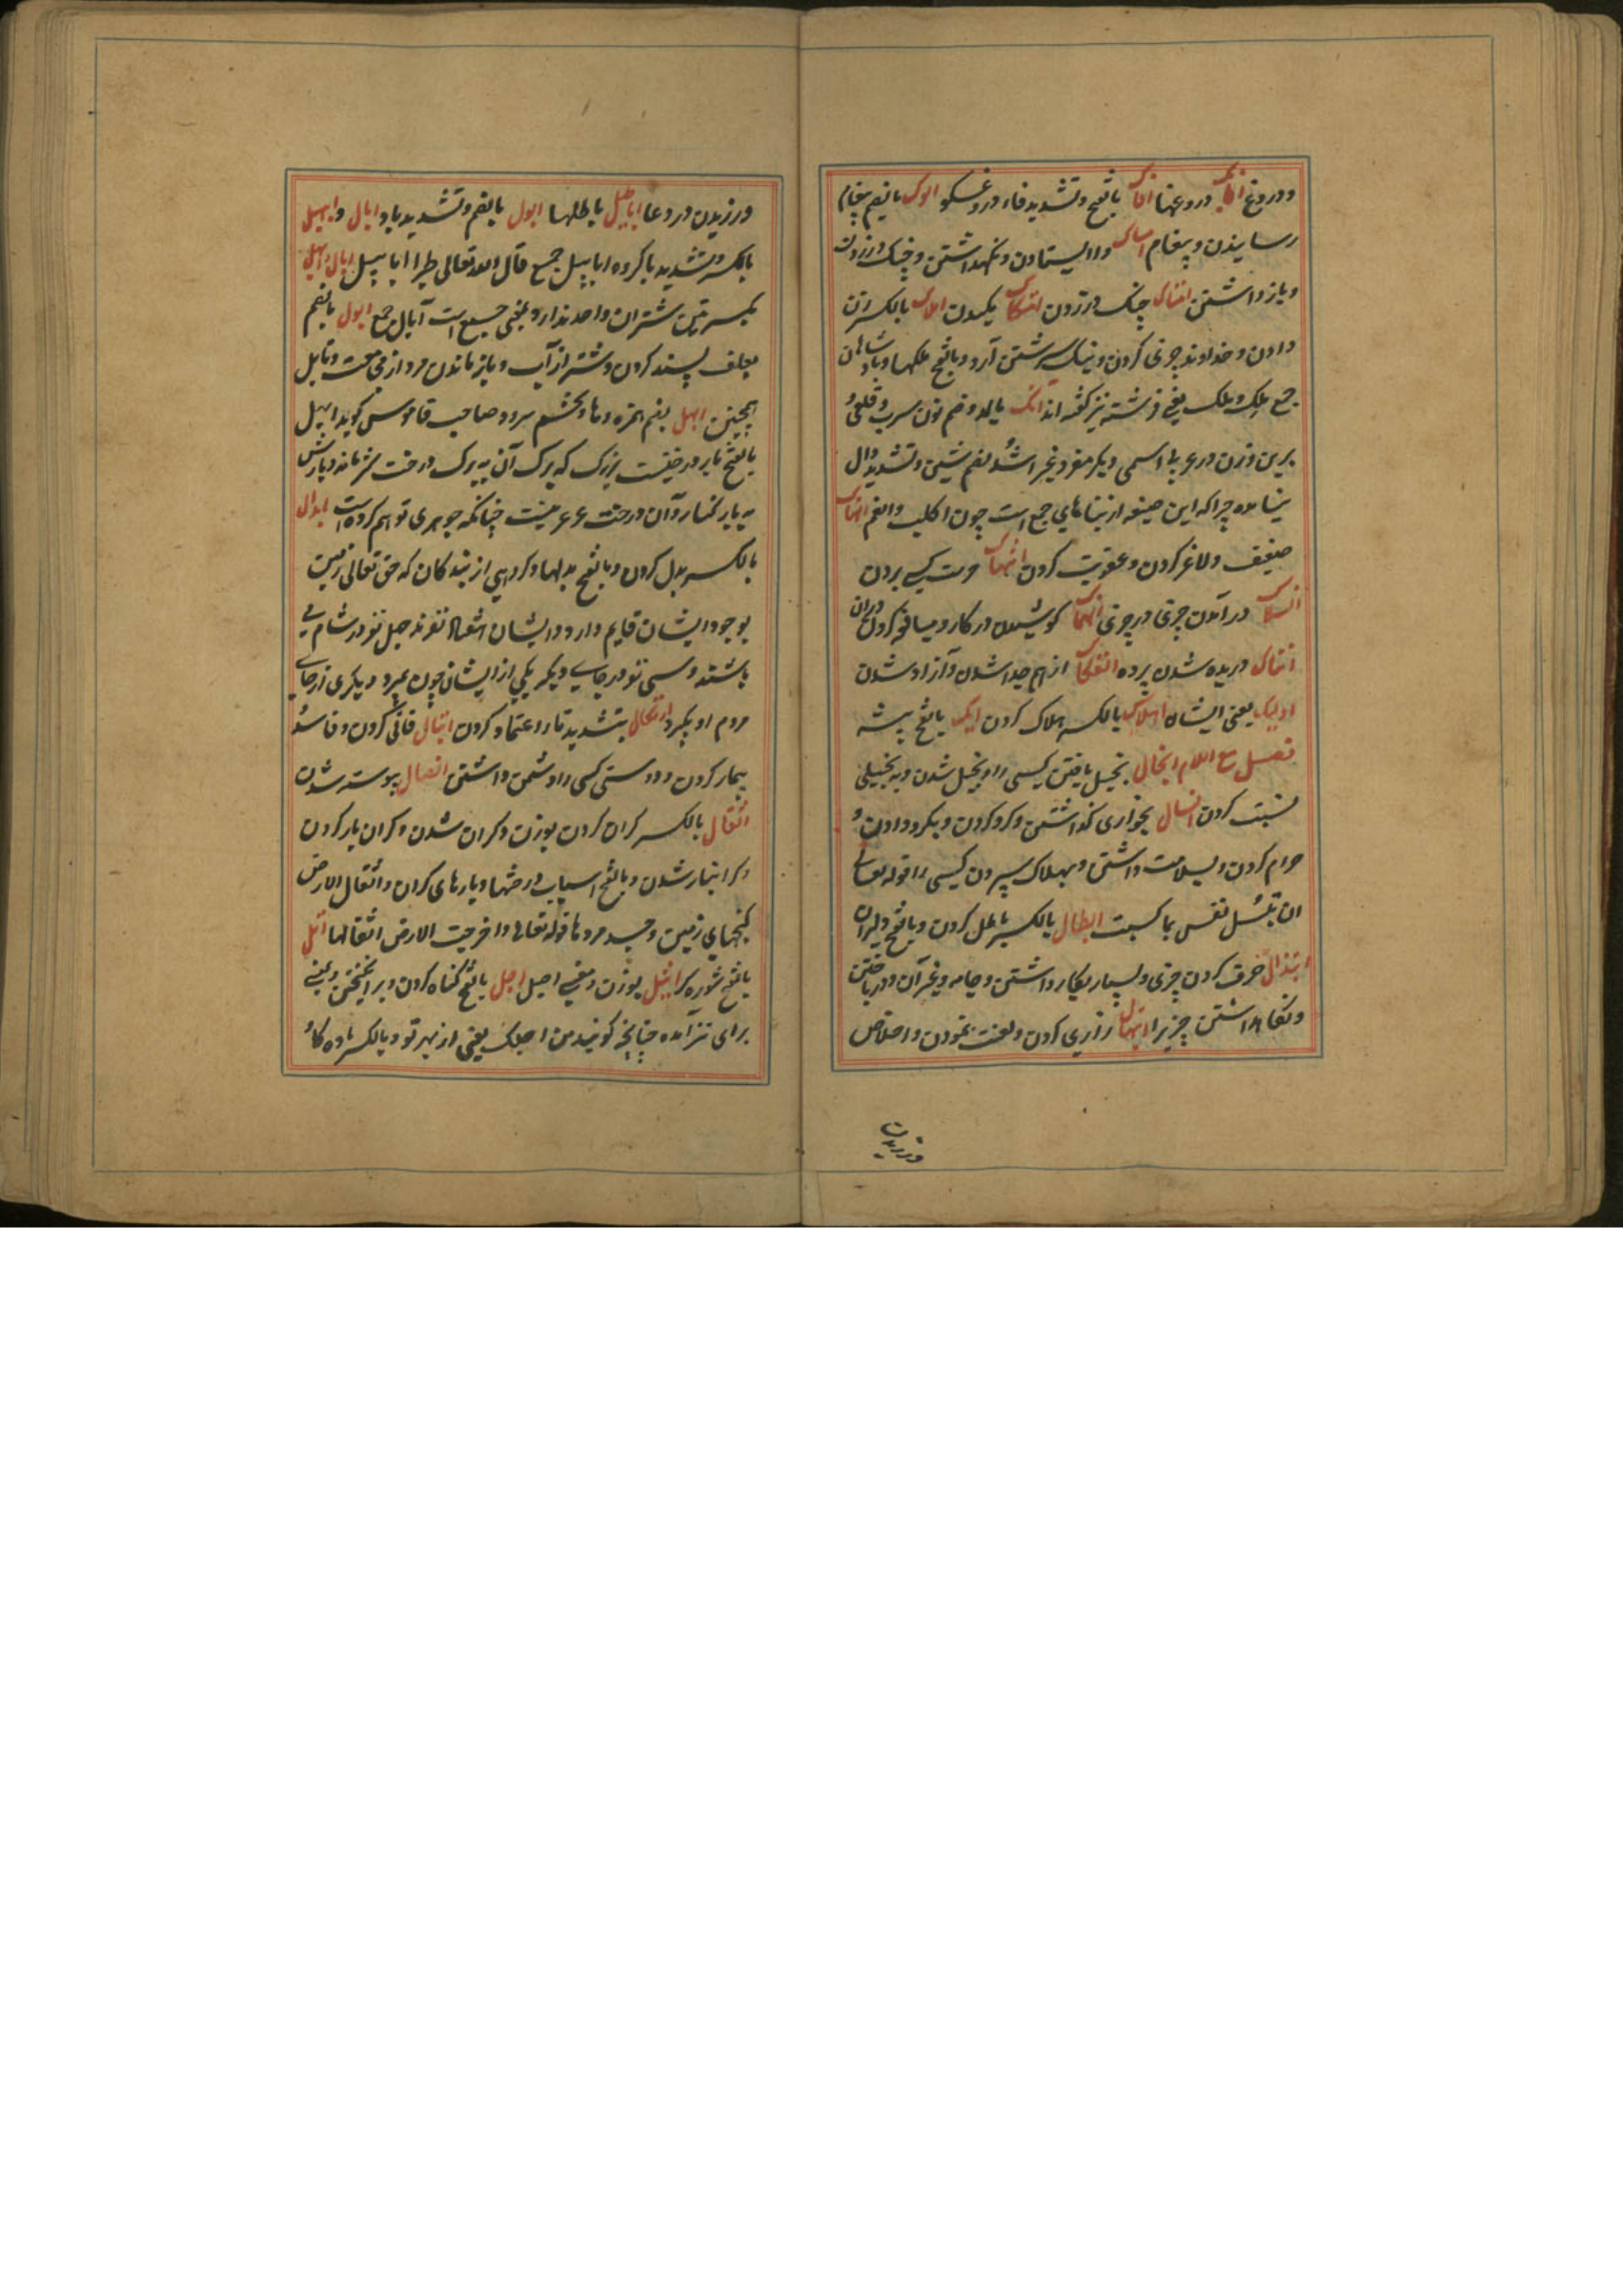 و دروغ افایک دروغها افاک بالفتح و تشدید فاء دروغگو الوک بالضم پیغام
رسانیدن و پیغام امساک وا ایستادن و نگهداشتن و چنک در زدن
و باز داشتن امتساک چنک در زدن یکسدن املاک بالکسر زن
دادن و خداوند چیزی کردن و نیک سرشتن آرد و بالفتح ملکها و پادشاهان
جمع ملک و ملک یعنی فرشته نیز گفته اند آنک بالمد و ضم نون سرب و قلعی و
برین وزن در عربی اسمی دیگر مفرد غیر اشد بضم شین و تشدید دال
نیامده چرا که این صیغه از بناهای جمع است چون اکلب و انعم انهاک
ضعیف و لاغر کردن و عقوبت کردن انتهاک حرمت کسی بردن
انسلاک در آمدن چیزی در چیزی انهماک کوشیدن در کار و مبالغه کردن در آن
انهتاک دریده شدن پرده انفکاک از هم جدا شدن و آزاد شدن
اولیک یعنی ایشان اهلاک بالکسر هلاک کردن ایک بالفتح بیشه
فصل مع اللام ابخال بخیل یافتن کسی را و بخیل شدن و به بخیلی
نسبت کردن ابسال بخواری گذاشتن و گرو کردن و بگرو دادن و
حرام کردن و بسلامت داشتن و بهلاک سپردن کسی را قوله تعالی
ان تبسل نفس بما کسبت ابطال بالکسر باطل کردن و بالفتح دلیران
ابتذال خرق کردن چیزی و بسیار بکار داشتن و جامه و غیر آن و در باختن
و نگاه داشتن چیزی را ابتهال زاری کردن و لعنت نمودن و اخلاص
ورزیدن
ورزیدن در دعا اباطیل باطلها ابول بالضم و تشدید با و ابال و ابیل
بالکسر و تشدید با گروه ابابیل جمع قال الله تعالی طیرا ابابیل ابال ابل
بکسرتین شتران واحد ندارد بمعنی جمع است آبال جمع ابول بالضم
بعلف بسند کردن شتر از آب و باز ماندن مرد از مجامعت و تابل
همچنین ابهل بضم همزه و ها و بخشم سرو و صاحب قاموس گوید ابهل
بالفتح بار درختیست بزرگ که برک آن به برک درخت گز ماند و بارش
به بار کنار و آن درخت عرعر نیست چنانکه جوهری توهم کرده است ابدال
بالکسر بدل کردن و بالفتح بدلها و گروهی از بندگان که حق تعالی زمین
بوجود ایشان قایم دارد و ایشان هفتاد نفرند چهل نفر در شام می
باشند و سی نفر در جاهای دیگر یکی از ایشان چون بمیرد دیگری از جای
مردم او بگیرد اتکال بتشدید تا اعتماد کردن اتبال فانی کردن و فاسد و
بیمار کردن و دوستی کسی را دشمن داشتن اتصال پیوسته شدن
اثقال بالکسر گران کردن بوزن و گران شدن و گران بار کردن
و گرانبار شدن و بالفتح اسباب و رختها و بارهای گران و اثقال الارض
گنجهای زمین و جسد مردها قوله تعالی و اخرجت الارض اثقالها اثل
بالفتح شوره گز اثیل بوزن و معنی اصیل اجل بالفتح گناه کردن و بر انگیختن و بمعنی
برای نیز آمده چنانچه گویند من اجلک یعنی از بهر تو و بالکسر ماده گاو